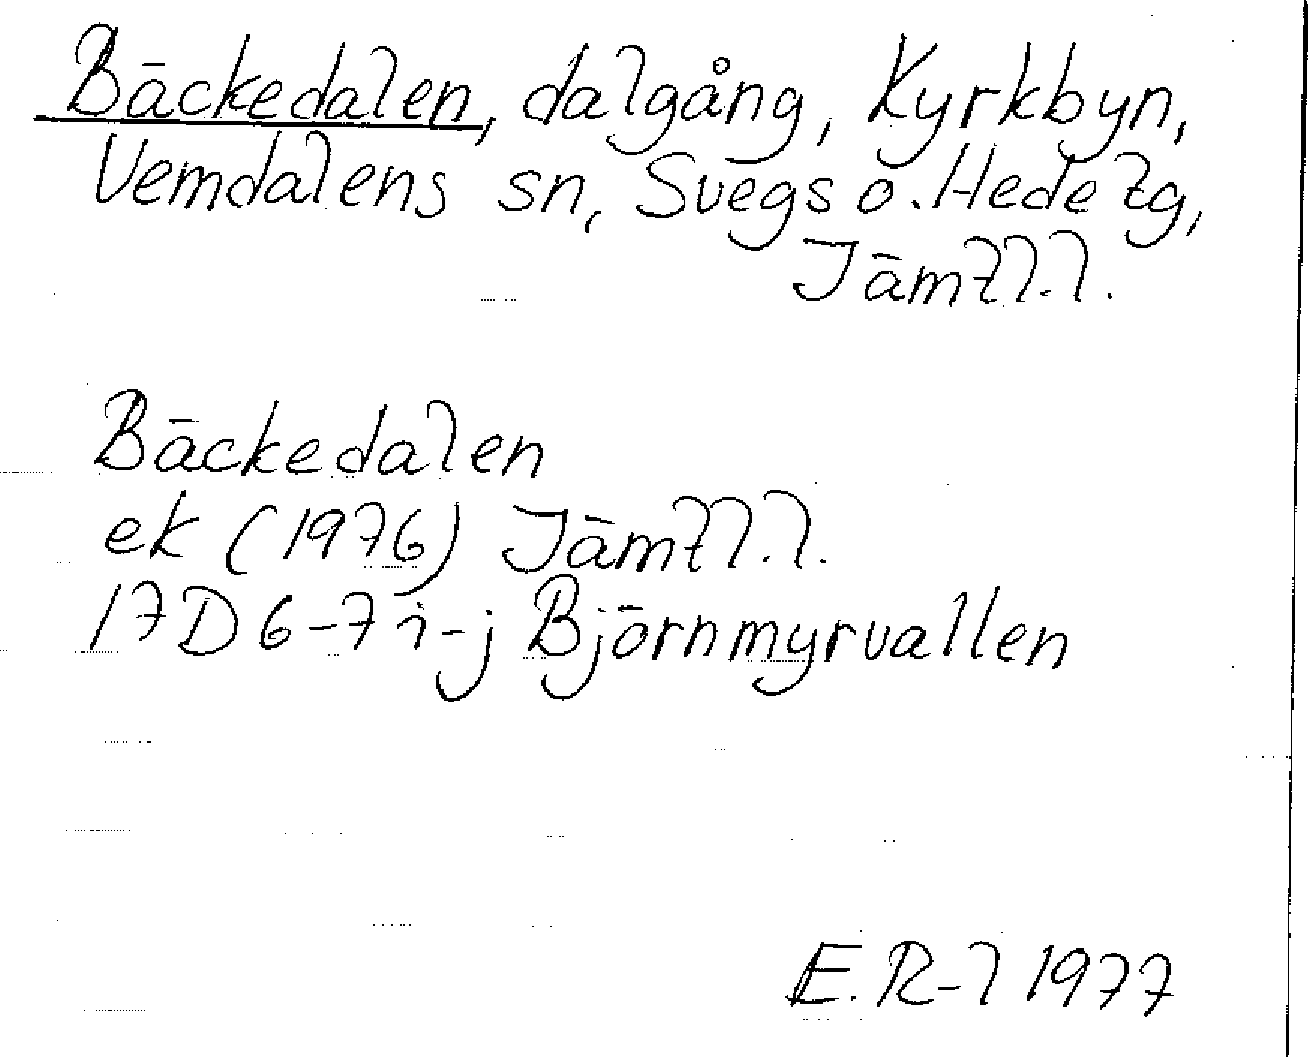 Bäckedalen, dalgång, Kyrkbyn,
Vemdalens sn, Svegs o. Hede tg,
Jämtl. l.
Bäckedalen
ek (1976) Jämtl. l.
17D 6-7 i-j Björnmyrvallen
E. R-l 1977